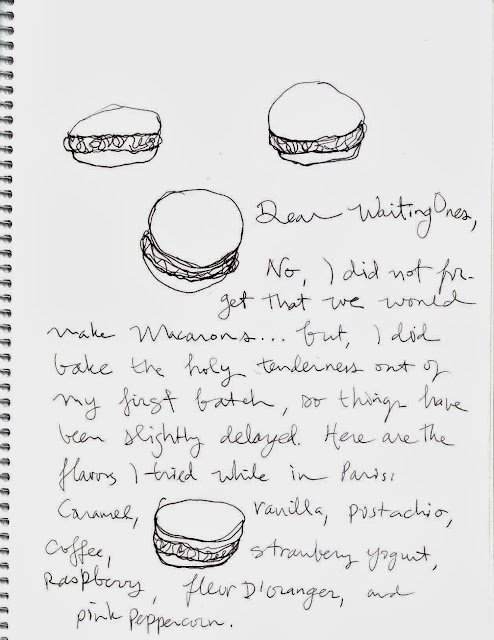 Dear Waiting Ones,
No, I did not for-
get that we would
make Macarons... but, I did
bake the holy tenderness out of
my first batch, so things have
been slightly delayed. Here are the
flavors I tried while in Paris:
Caramel, vanilla, pistachio,
Coffee, strawberry yogurt,
Raspberry, fleur D'oranger, and
pink peppercorn.